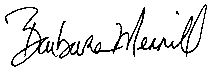 Barbara Merrill